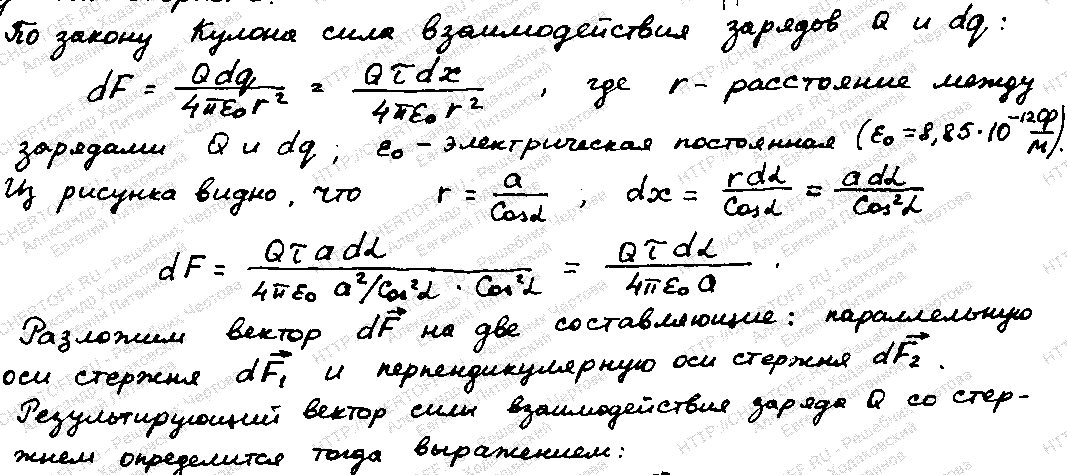 По закону Кулона сила взаимодействия зарядов Q и dq:
dF = Qdq/4πε₀r² = Qτdx/4πε₀r² , где r - расстояние между
зарядами Q и dq; ε₀ - электрическая постоянная (ε₀ = 8,85·10⁻¹² Ф/м).
Из рисунка видно, что r = a/Cosα ; dx = rdα/Cosα = adα/Cos²α
dF = Qτadα/4πε₀ a²/Cos²α · Cos²α = Qτdα/4πε₀a .
Разложим вектор dF⃗ на две составляющие: параллельную
оси стержня dF⃗₁ и перпендикулярную оси стержня dF⃗₂.
Результирующий вектор силы взаимодействия заряда Q со стер-
жнем определится тогда выражением: